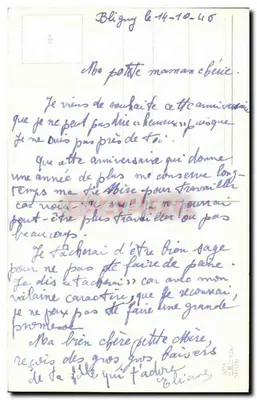 Bligny le 14-10-46
Ma petite maman chérie.
Je viens de souhaite cette anniversaire
que je ne peut pas dire «heureux» puisque
je ne suis pas près de toi.
Que cette anniversaire qui donne
une année de plus me conserve long-
temps ma Mère pour travailler
car moi je ne pourrai
peut-être plus travailler ou pas
beaucoup.
Je tâcherai d'être bien sage
pour ne pas te faire de peine.
Je dis «tacherai» car avec mon
vilaine caractère, que je reconnai,
je ne peux pas te faire une grande
promesse
Ma bien chère petite Mère,
reçois des gros, gros baisers
de ta fille qui t'adore
Eliane